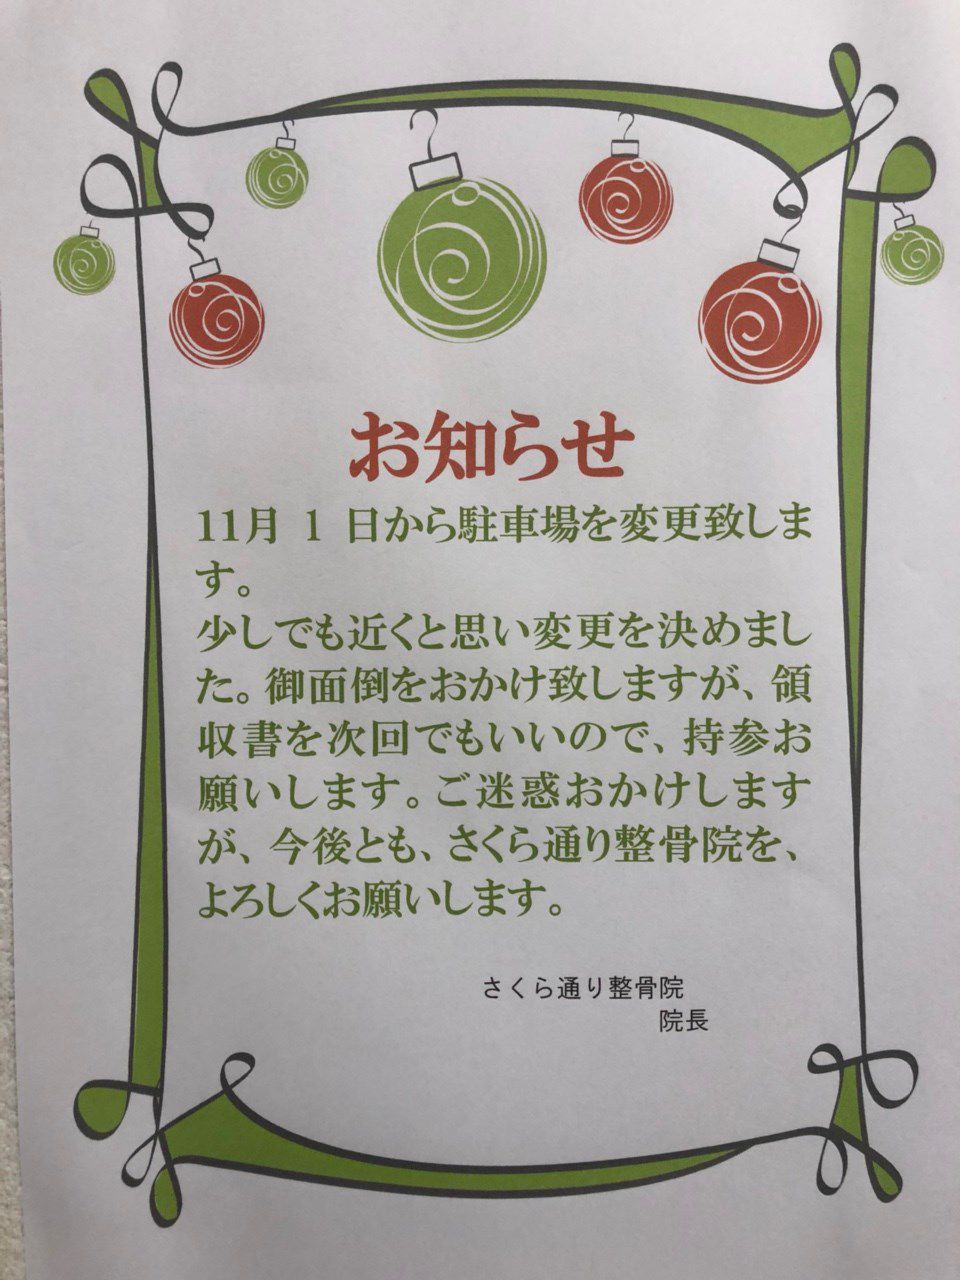 お知らせ
11月 1 日から駐車場を変更致しま
す。
少しでも近くと思い変更を決めまし
た。御面倒をおかけ致しますが、領
収書を次回でもいいので、持参お
願いします。ご迷惑おかけします
が、今後とも、さくら通り整骨院を、
よろしくお願いします。
さくら通り整骨院
院長